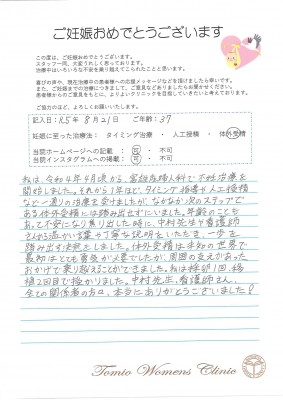 ご妊娠おめでとうございます
この度は、ご妊娠おめでとうございます。
スタッフ一同、大変うれしく思っております。
治療中はいろいろな不安を乗り越えてこられたことと思います。
喜びの声や、現在治療中の患者様への応援メッセージなどを頂けましたら幸いです。
また、妊娠までの治療につきまして、ご意見などありましたらお聞かせください。
患者様からご意見をもとに、よりよいクリニックを目指していきたいと考えております。
ご協力のほど、よろしくお願いいたします。
ご記入日：R5年8月21日 ご年齢：37
妊娠に至った治療法： タイミング治療 ・ 人工授精 ・ 体外受精
当院ホームページへの記載 ： 可 ・ 不可
当院インスタグラムへの掲載： 可 ・ 不可
私は、令和4年4月頃から、富雄産婦人科で不妊治療を
開始しました。それから1年ほど、タイミング指導や人工授精
など一通りの治療を受けましたが、なかなか次のステップで
ある体外受精には踏み出せずにいました。年齢のことも
あって不安になり焦り出した時に、中村先生や看護師
さんから温かい言葉や丁寧な説明をいただき、一歩を
踏み出す決断としました。体外受精は未知の世界で
最初はとても勇気が必要でしたが、周囲の支えがあった
おかげで乗り越えることができました。私は採卵1回、移
植2回目で授かりました。中村先生、看護師さん、
全ての関係者の方々、本当にありがとうございました！
Tomio Womens Clinic